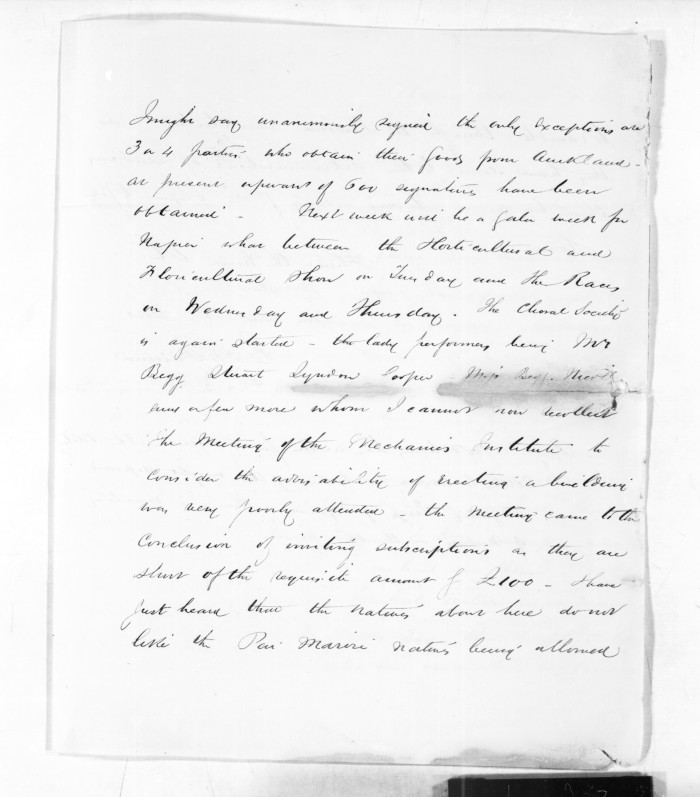 I might say unanimously signed the only exceptions are
3 or 4 parties who obtain their goods from Auckland -
at present upwards of 600 signatures have been
obtained - Next week will be a gala week for
Napier what between the Horticultural and
Floricultural Show on Tuesday and the Races
on Wednesday and Thursday. The Choral Society
is again started - the lady performers being Mrs
Begg Stuart Lyndon Cooper - Miss Begg
and a few more whom I cannot now recollect
The Meeting of the Mechanics Institute to
consider the advisability of erecting a building
was very poorly attended - the meeting came to the
conclusion of inviting subscriptions as they are
short of the requisite amount of £100 - I have
just heard that the natives about here do not
like the Pai Marire natives being allowed